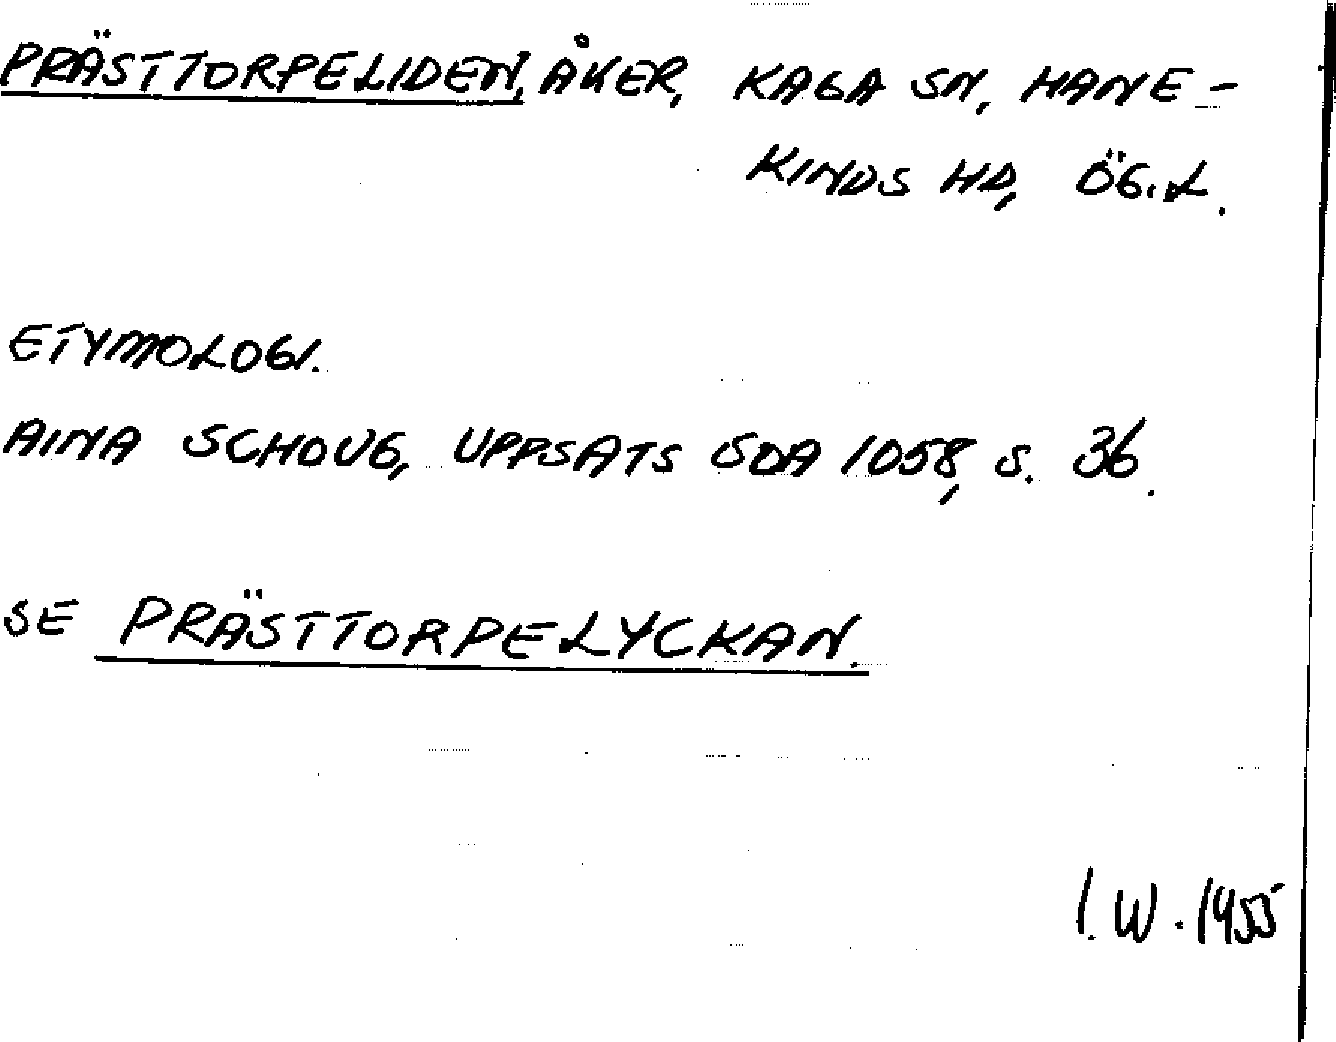 PRÄSTTORPELIDEN, ÅKER, KAGA SN, HANE-
KINDS HD, ÖG.L.
ETYMOLOGI.
AINA SCHOUG, UPPSATS SOA 1058, S. 36.
SE PRÄSTTORPELYCKAN.
I.W. 1955